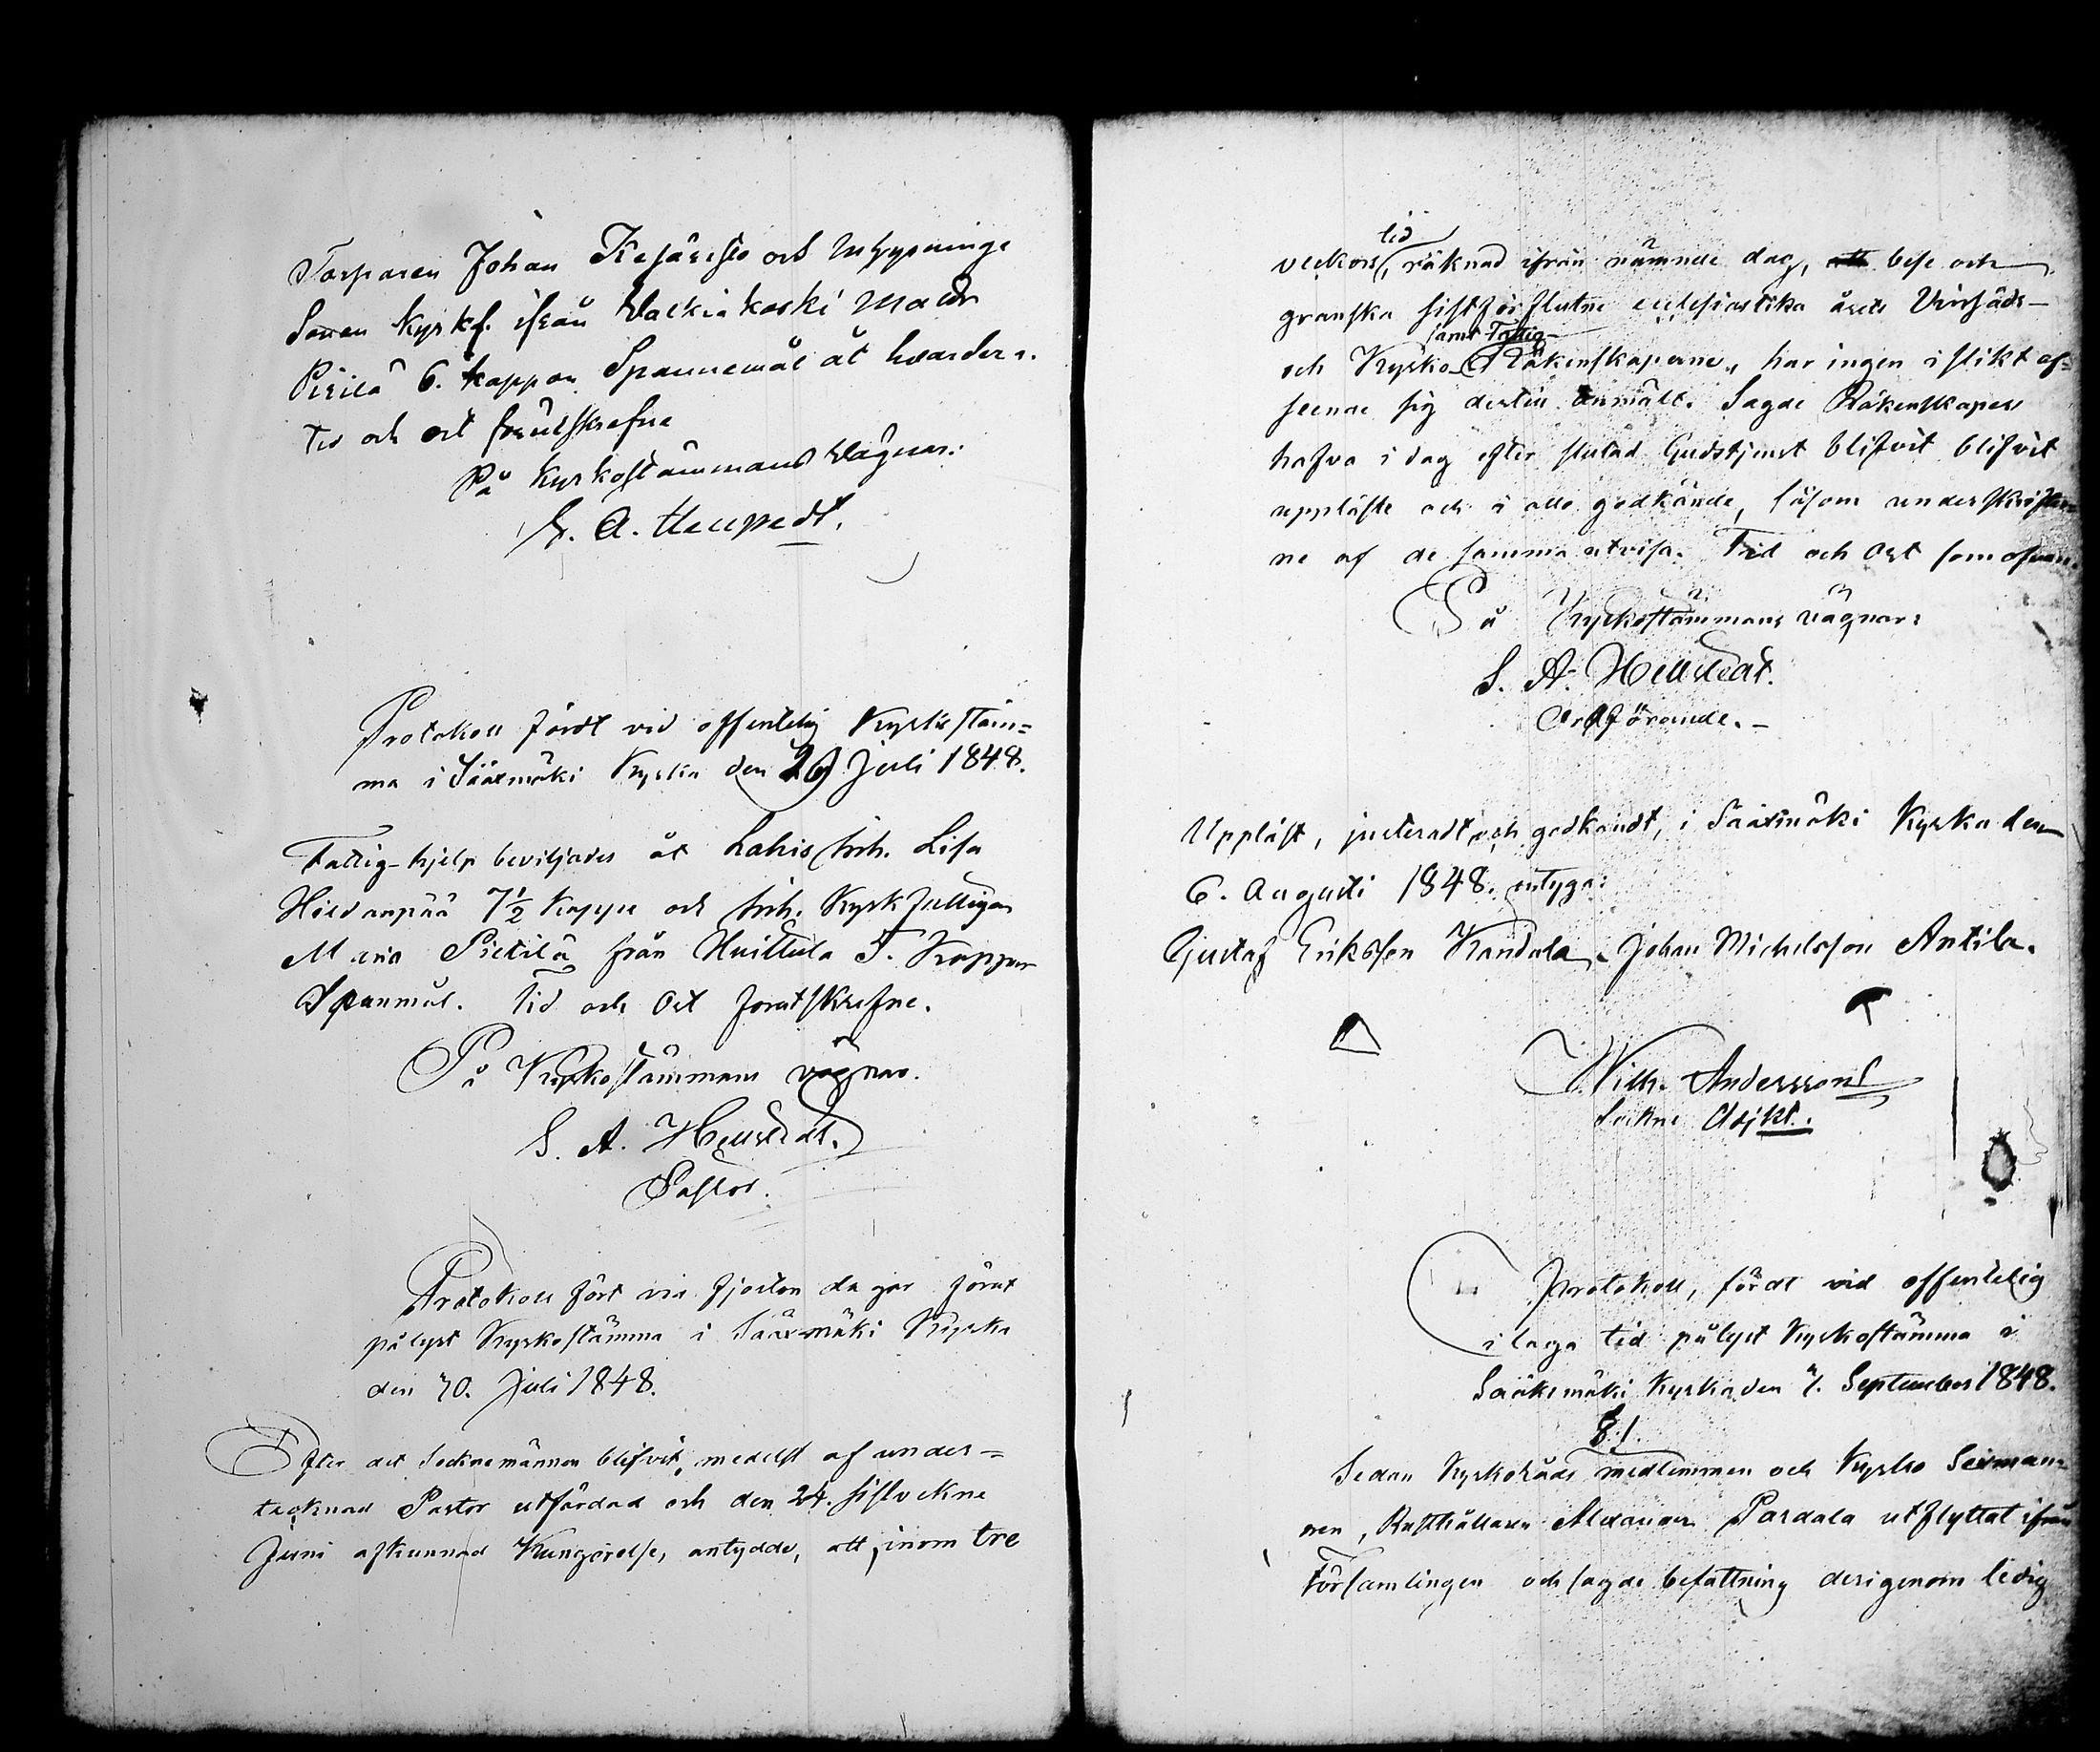 Torparen Johan Kesäristo och Inhysninge
Sonen Kyrkf. ifrån Valkiakoski Matts
Pirilä 6. kappar Spannemål åt hvardera.
Tid och ort förutskrefne
På Kyrkostämmans vägnar:
S. A. Hellstedt.
Protokoll fördt vid offentelig Kyrkostäm=
ma i Sääxmäki Kyrka den 29 Juli 1848.
Fattig-hjelp beviljades åt Lahis Inh. Lisa
7½ Kappe och Inh. Kyrkfattigan
Maria Pietilä från Huittula 5. Kappar
Spanmål. Tid och Ort förutskrefne.
På Kyrkostämmans vägnar.
S. A. Hellstedt.
Pastor.
Protokoll fört vid fjorton dagar förut
pålyst Kyrkostämma i Sääxmäki Kyrka
den 30. Juli 1848.
Efter det Socknemännen blifvit, medelst af under=
tecknad Pastor utfärdad och den 24. sistvekne
Juni afkunnad Kungörelse, antydde, att, inom tre
tid
veckors, räknad ifrån nämnde dag, att bese och
granska sistförflutne ecclesiastika årets Värjåds-
samt Fattig-
och Kyrko- Räkenskaperne, har ingen i slikt af=
seende sig dertill anmält. Sagde Räkenskaper
hafva i dag efter slutad Gudstjenst blifvit blifvit
uppläste och i allo godkände, såsom underskrifter=
ne af de samma utvisa. Tid och Ort som ofvan.
På Kyrkostämmans vägnar:
S. A. Hellstedt.
Ordförande.-
Uppläst, justeradt och godkändt, i Sääxmäki Kyrka den
6. Augusti 1848. intyga:
Gustaf Eriksson Kandala. Johan Michelsson Antila.
Wilh. Andersson
Sockne Adjkt.
Protokoll, fördt vid offentelig
i laga tid pålyst Kyrkostämma i
Sääksmäki Kyrka den 3. September 1848.
§ 1.
Sedan Kyrkoråds medlemmen och Kyrko Sexman=
nen, Rusthållaren Alexander Pardala utflyttat ifrån
Församlingen och sagde befattning derigenom ledig